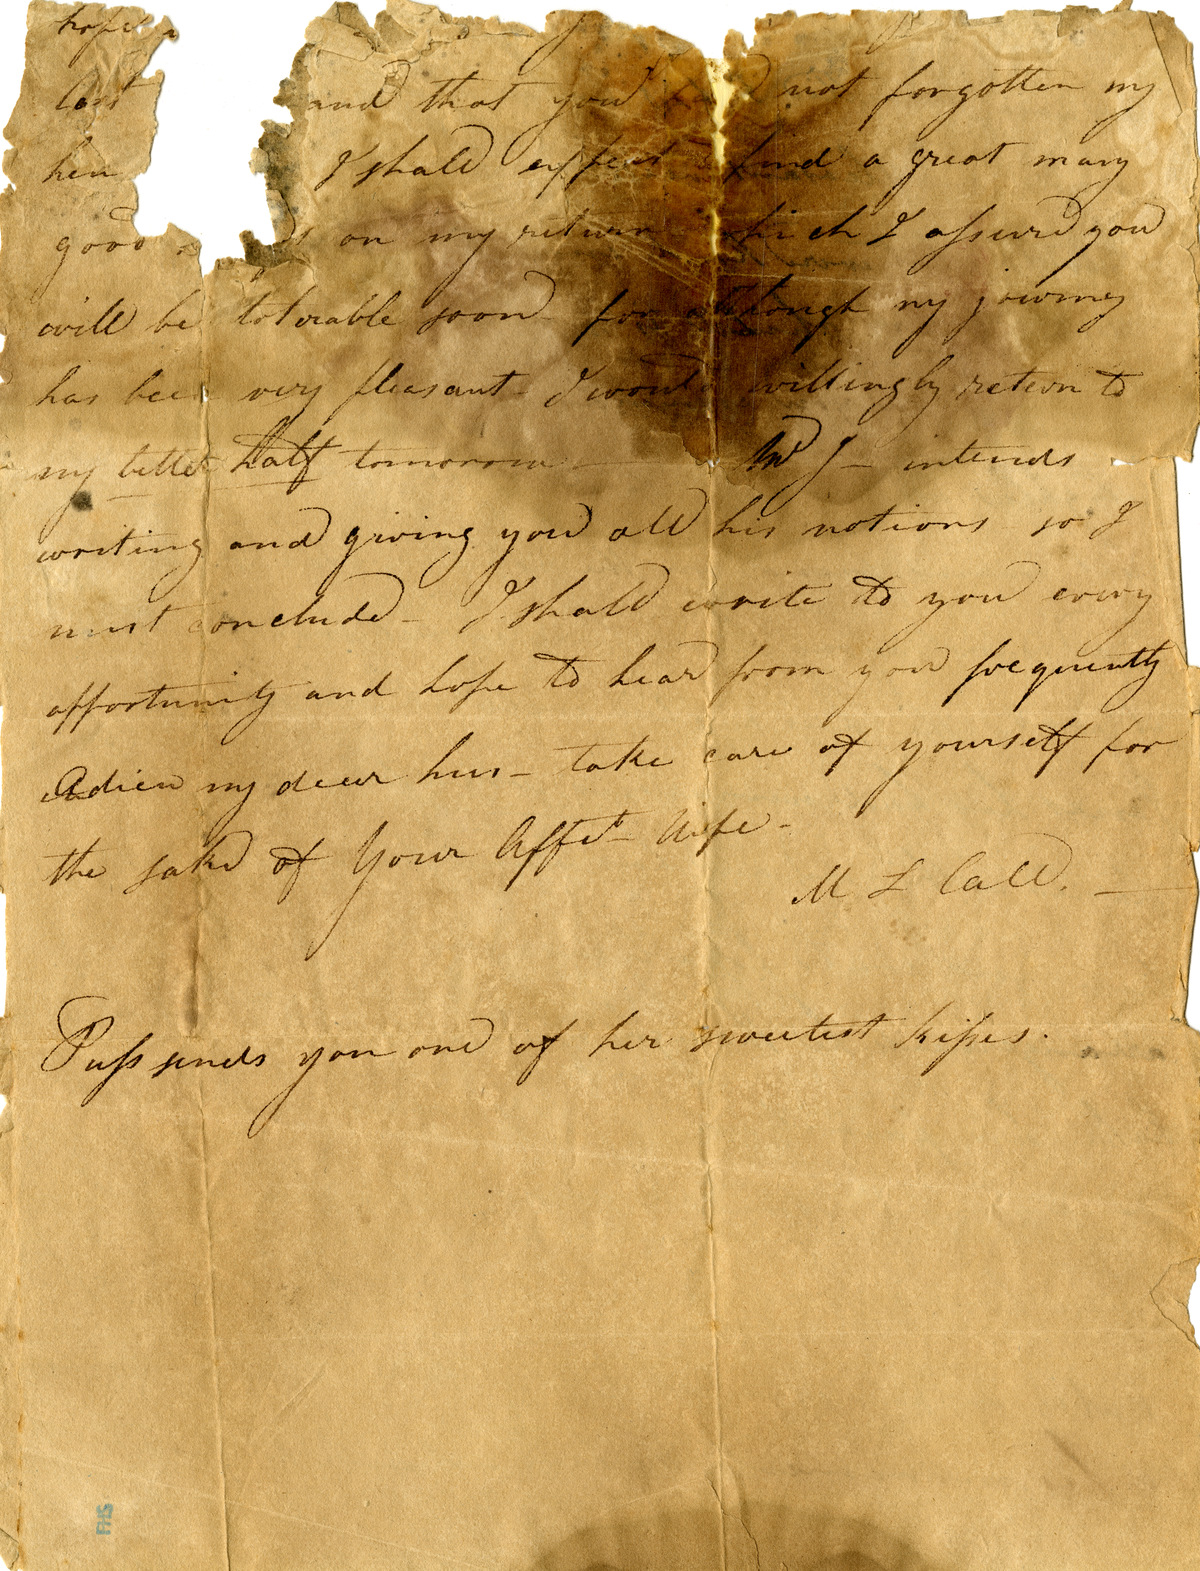 hope
last and that you not forgotten my
hen I shall expect find a great many
good on my return which I assure you
will be tolerable soon - for although my journey
has been very pleasant - I would willingly return to
my better half tomorrow - Mr J - intends
writing and giving you all his notions so I
must conclude - I shall write to you every
opportunity and hope to hear from you frequently
Adieu my dear hus - take care of yourself for
the sake of Your Affet - Wife -
M L Call. -
Puss sends you one of her sweetest kisses.